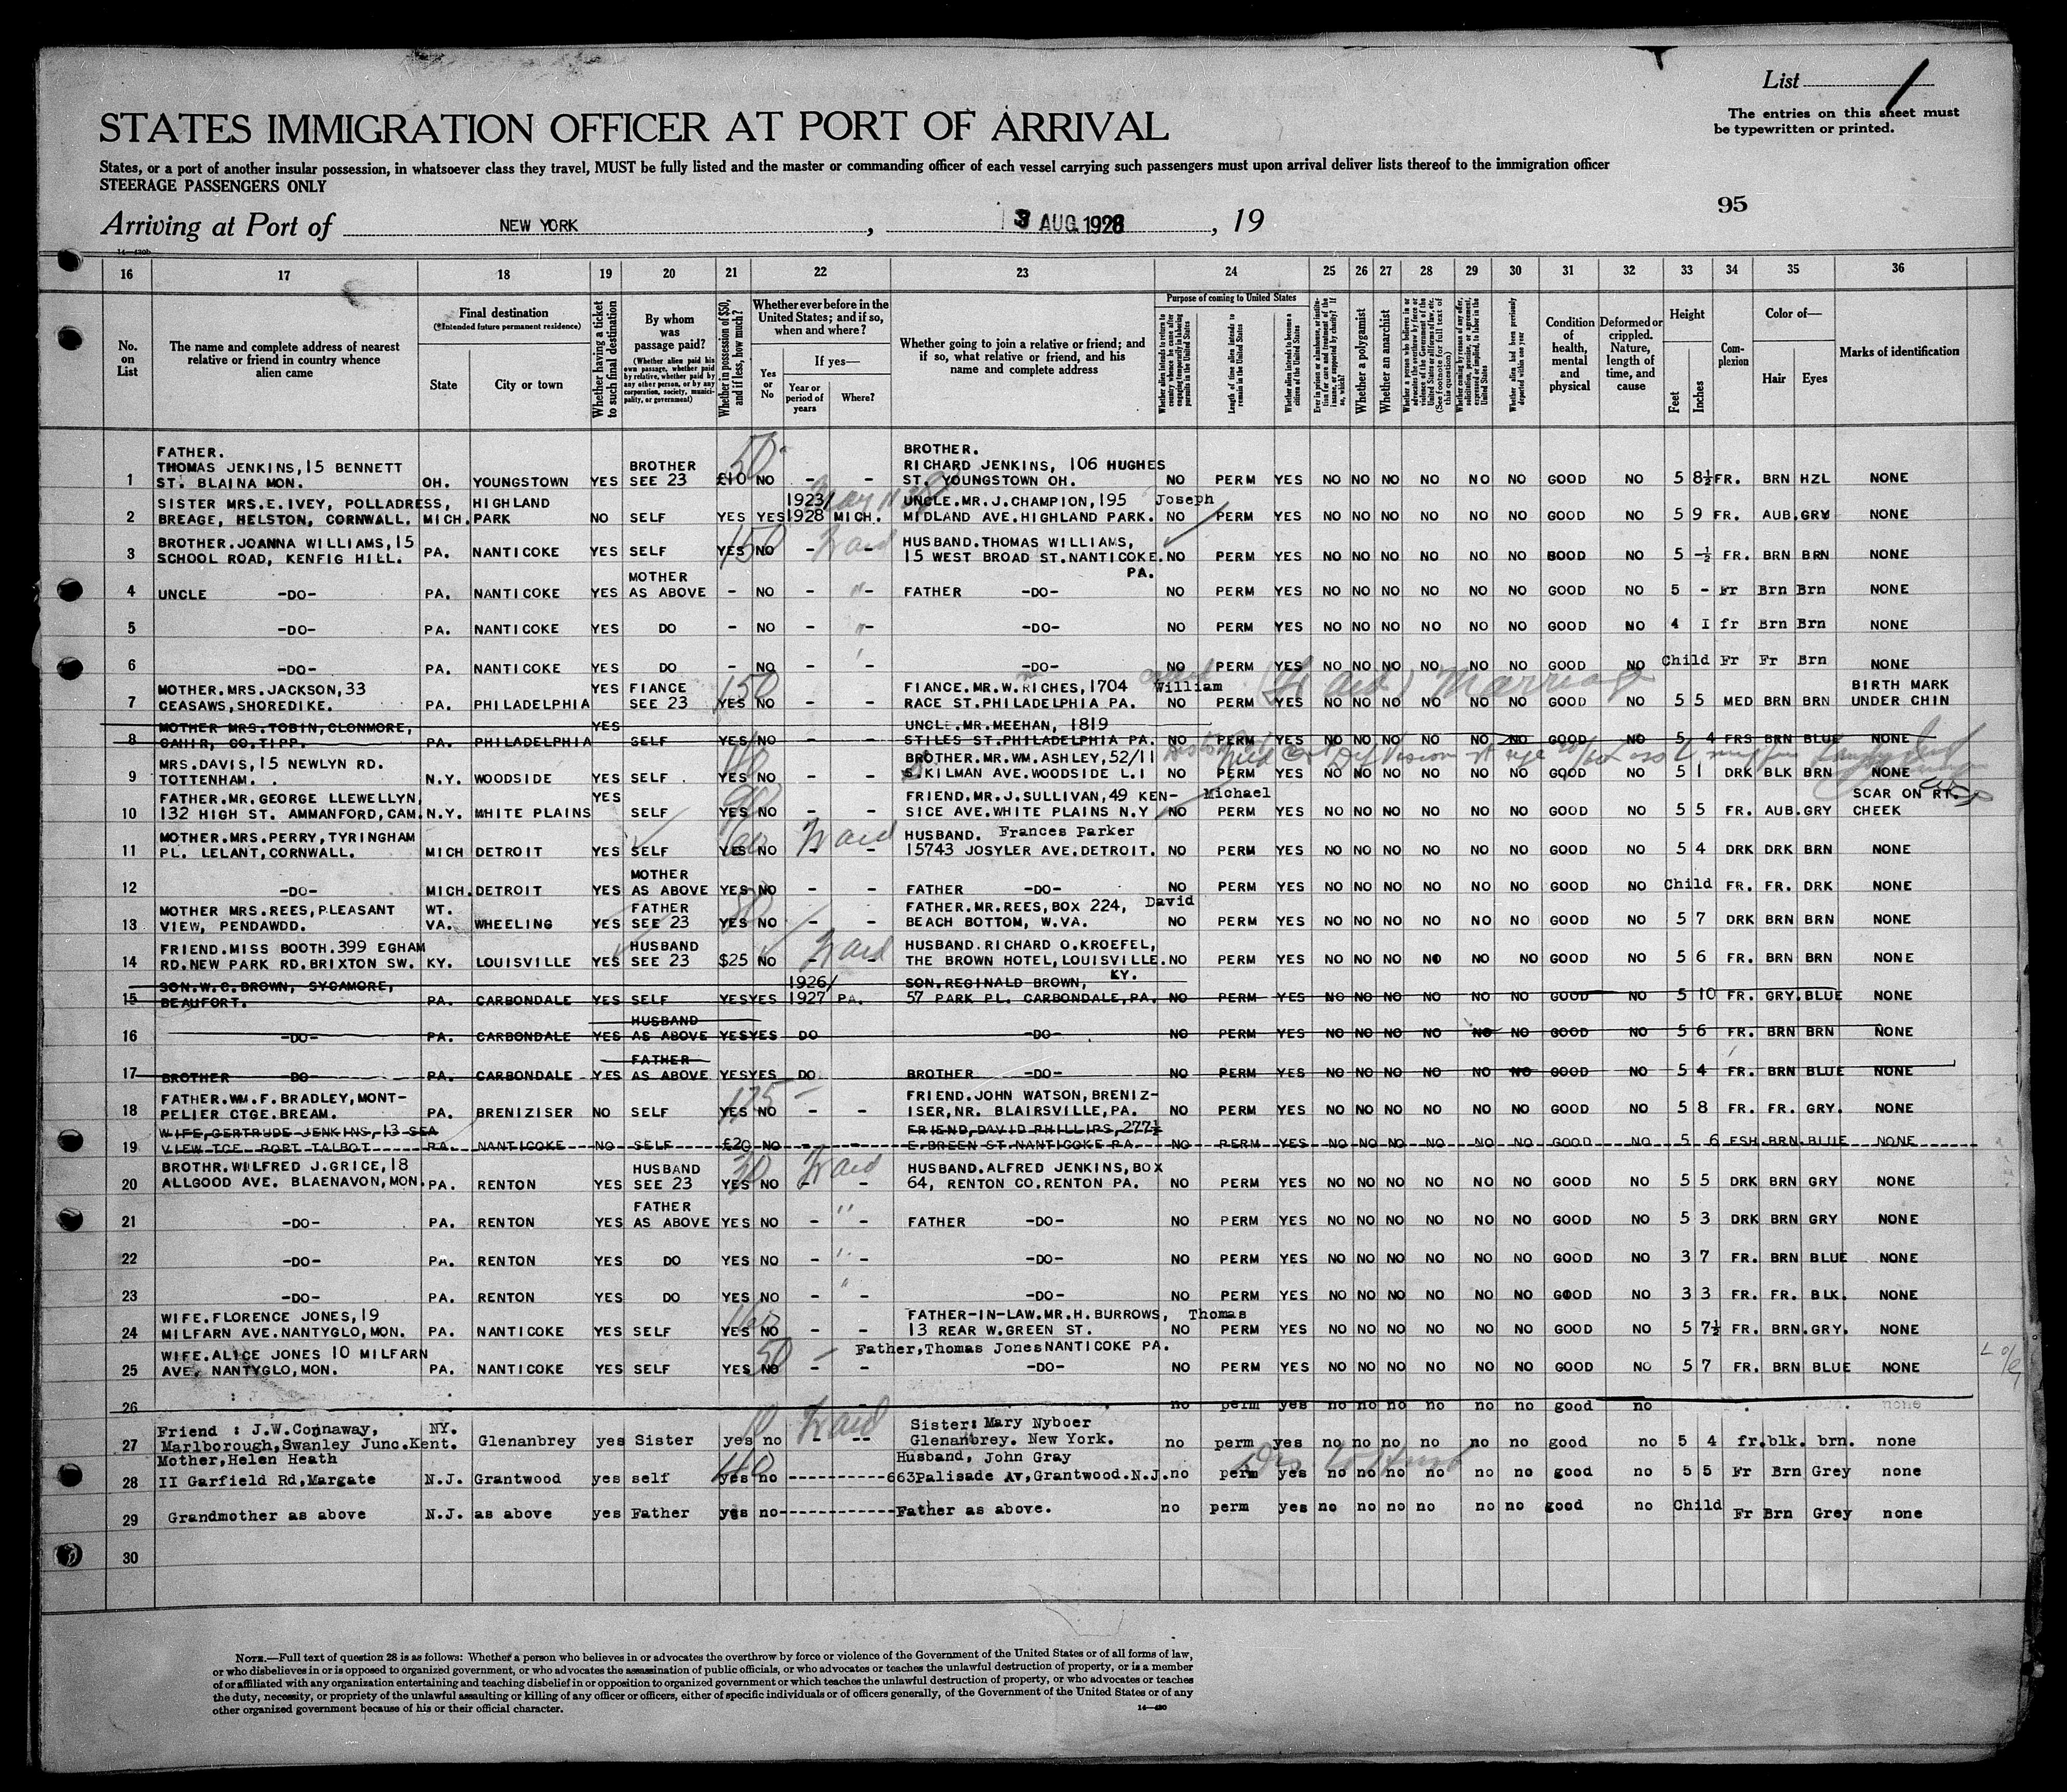 List 1
The entries on this sheet must
be typewritten or printed.
STATES IMMIGRATION OFFICER AT PORT OF ARRIVAL
States, or a port of another insular possession, in whatsoever class they travel, MUST be fully listed and the master or commanding officer of each vessel carrying such passengers must upon arrival deliver lists thereof to the immigration officer
STEERAGE PASSENGERS ONLY
95
Arriving at Port of NEW YORK, 3 AUG 1928, 19
16 17 18 19 20 21 22 23 24 25 26 27 28 29 30 31 32 33 34 35 36
No. on List
The name and complete address of nearest relative or friend in country whence alien came
Final destination
(*Intended future permanent residence)
State
City or town
Whether having a ticket to such final destination
By whom was passage paid?
(Whether alien paid his own passage, whether paid by relative, whether paid by any other person, or by any corporation, society, municipality, or government)
Whether in possession of $50, and if less, how much?
Whether ever before in the United States; and if so, when and where?
Yes or No
If yes—
Year or period of years
Where?
Whether going to join a relative or friend; and if so, what relative or friend, and his name and complete address
Purpose of coming to United States
Length of time alien intends to remain in the United States
Whether alien intends to become a citizen of the United States
Whether a polygamist
Whether an anarchist
Whether alien had been previously deported within one year
Condition of health, mental and physical
Deformed or crippled. Nature, length of time, and cause
Height
Feet
Inches
Complexion
Color of—
Hair
Eyes
Marks of identification
1 FATHER. THOMAS JENKINS, 15 BENNETT ST. BLAINA MON. OH. YOUNGSTOWN YES BROTHER SEE 23 £10 50 NO - - BROTHER. RICHARD JENKINS, 106 HUGHES ST. YOUNGSTOWN OH. NO PERM YES NO NO NO NO NO NO GOOD NO 5 8½ FR. BRN HZL NONE
2 SISTER MRS.E. IVEY, POLLADRESS, BREAGE, HELSTON, CORNWALL. MICH. HIGHLAND PARK NO SELF YES YES 1923/1928 MICH. UNCLE.MR.J.CHAMPION,195 Joseph MIDLAND AVE.HIGHLAND PARK. NO PERM YES NO NO NO NO NO NO GOOD NO 5 9 FR. AUB. GRY NONE
3 BROTHER.JOANNA WILLIAMS,15 SCHOOL ROAD, KENFIG HILL. PA. NANTICOKE YES SELF YES 150 NO - - HUSBAND.THOMAS WILLIAMS, 15 WEST BROAD ST.NANTICOKE. PA. NO PERM YES NO NO NO NO NO NO GOOD NO 5 -½ FR. BRN BRN NONE
4 UNCLE -DO- PA. NANTICOKE YES MOTHER AS ABOVE - NO - " - FATHER -DO- NO PERM YES NO NO NO NO NO NO GOOD NO 5 - Fr Brn Brn NONE
5 -DO- PA. NANTICOKE YES DO - NO - " - -DO- NO PERM YES NO NO NO NO NO NO GOOD NO 4 1 fr Brn Brn NONE
6 -DO- PA. NANTICOKE YES DO - NO - - -DO- NO PERM YES NO NO NO NO NO NO GOOD NO Child Fr Fr Brn NONE
7 MOTHER.MRS.JACKSON,33 CEASAWS,SHOREDIKE. PA. PHILADELPHIA YES FIANCE SEE 23 YES 150 NO - - FIANCE.MR.W.RICHES,1704 William RACE ST.PHILADELPHIA PA. NO PERM YES NO NO NO NO NO NO GOOD NO 5 5 MED BRN BRN BIRTH MARK UNDER CHIN
8 MOTHER MRS.TOBIN,CLONMORE, CAHIR, CO.TIPP. PA. PHILADELPHIA YES SELF YES NO - - UNCLE.MR.MEEHAN, 1819 STILES ST.PHILADELPHIA PA. NO PERM YES NO NO NO NO NO NO GOOD NO 5 4 FRS BRN BLUE NONE
9 MRS.DAVIS,15 NEWLYN RD. TOTTENHAM. N.Y. WOODSIDE YES SELF YES NO - - BROTHER.MR.WM.ASHLEY,52/11 SKILMAN AVE.WOODSIDE L.I NO PERM YES NO NO NO NO NO NO GOOD NO 5 1 DRK BLK BRN NONE
10 FATHER.MR.GEORGE LLEWELLYN, 132 HIGH ST. AMMANFORD,CAM. N.Y. WHITE PLAINS YES SELF YES NO - - FRIEND.MR.J.SULLIVAN,49 KEN- Michael SICE AVE.WHITE PLAINS N.Y NO PERM YES NO NO NO NO NO NO GOOD NO 5 5 FR. AUB.GRY SCAR ON RT. CHEEK
11 MOTHER.MRS.PERRY,TYRINGHAM PL. LELANT,CORNWALL. MICH DETROIT YES SELF YES NO - - HUSBAND. Frances Parker 15743 JOSYLER AVE.DETROIT. NO PERM YES NO NO NO NO NO NO GOOD NO 5 4 DRK DRK BRN NONE
12 -DO- MICH. DETROIT YES MOTHER AS ABOVE YES NO - - FATHER -DO- NO PERM YES NO NO NO NO NO NO GOOD NO Child FR. FR. DRK NONE
13 MOTHER MRS.REES,PLEASANT VIEW, PENDAWDD. WT. VA. WHEELING YES FATHER SEE 23 YES NO - - FATHER.MR.REES,BOX 224, David BEACH BOTTOM, W.VA. NO PERM YES NO NO NO NO NO NO GOOD NO 5 7 DRK BRN BRN NONE
14 FRIEND.MISS BOOTH.399 EGHAM RD.NEW PARK RD.BRIXTON SW. KY. LOUISVILLE YES HUSBAND SEE 23 $25 NO - - HUSBAND.RICHARD O.KROEFEL, THE BROWN HOTEL,LOUISVILLE. KY. NO PERM YES NO NO NO NO NO NO GOOD NO 5 6 FR. BRN BRN NONE
15 SON.W.C.BROWN, SYCAMORE, BEAUFORT. PA. CARBONDALE YES SELF YES YES 1926/1927 PA. SON.REGINALD BROWN, 57 PARK PL. CARBONDALE,PA. NO PERM YES NO NO NO NO NO NO GOOD NO 5 10 FR. GRY.BLUE NONE
16 -DO- PA. CARBONDALE YES HUSBAND AS ABOVE YES YES DO -DO- NO PERM YES NO NO NO NO NO NO GOOD NO 5 6 FR. BRN BRN NONE
17 BROTHER -DO- PA. CARBONDALE YES FATHER AS ABOVE YES YES DO BROTHER -DO- NO PERM YES NO NO NO NO NO NO GOOD NO 5 4 FR. BRN BLUE NONE
18 FATHER.WM.F.BRADLEY,MONT- PELIER CTGE.BREAM. PA. BRENIZISER NO SELF YES 175 NO - - FRIEND.JOHN WATSON,BRENIZ- ISER,NR. BLAIRSVILLE,PA. NO PERM YES NO NO NO NO NO NO GOOD NO 5 8 FR. FR. GRY. NONE
19 WIFE,GERTRUDE JENKINS,13 SEA VIEW TCE PORT TALBOT PA. NANTICOKE NO SELF £20 NO - - FRIEND,DAVID PHILLIPS,277½ E.BREEN ST.NANTICOKE PA NO PERM YES NO NO NO NO NO NO GOOD NO 5 6 FSH BRN BLUE NONE
20 BROTHR.WILFRED J.GRICE,18 ALLGOOD AVE. BLAENAVON,MON. PA. RENTON YES HUSBAND SEE 23 YES 30 NO - - HUSBAND.ALFRED JENKINS,BOX 64, RENTON CO.RENTON PA. NO PERM YES NO NO NO NO NO NO GOOD NO 5 5 DRK BRN GRY NONE
21 -DO- PA. RENTON YES FATHER AS ABOVE YES NO - " - FATHER -DO- NO PERM YES NO NO NO NO NO NO GOOD NO 5 3 DRK BRN GRY NONE
22 -DO- PA. RENTON YES DO YES NO - " - -DO- NO PERM YES NO NO NO NO NO NO GOOD NO 3 7 FR. BRN BLUE NONE
23 -DO- PA. RENTON YES DO YES NO - " - -DO- NO PERM YES NO NO NO NO NO NO GOOD NO 3 3 FR. FR. BLK. NONE
24 WIFE.FLORENCE JONES,19 MILFARN AVE.NANTYGLO,MON. PA. NANTICOKE YES SELF YES NO - - FATHER-IN-LAW.MR.H.BURROWS, Thomas 13 REAR W.GREEN ST. NANTICOKE PA. NO PERM YES NO NO NO NO NO NO GOOD NO 5 7½ FR. BRN.GRY. NONE
25 WIFE.ALICE JONES 10 MILFARN AVE. NANTYGLO,MON. PA. NANTICOKE YES SELF YES 50 NO - - Father,Thomas Jones -DO- NO PERM YES NO NO NO NO NO NO GOOD NO 5 7 FR. BRN BLUE NONE
26 no perm yes no no no no no no good no none
27 Friend : J.W.Connaway, Marlborough,Swanley Junc.Kent. NY. Glenanbrey yes Sister yes no - -- Sister: Mary Nyboer Glenanbrey. New York. no perm yes no no no no no no good no 5 4 fr.blk. brn. none
28 Mother,Helen Heath II Garfield Rd,Margate N.J. Grantwood yes self yes no Husband, John Gray 663Palisade Av,Grantwood.N.J. no perm yes no no no no no no good no 5 5 Fr Brn Grey none
29 Grandmother as above N.J. as above yes Father yes no Father as above. no perm yes no no no no no no good no Child Fr Brn Grey none
30
NOTE.—Full text of question 28 is as follows: Whether a person who believes in or advocates the overthrow by force or violence of the Government of the United States or of all forms of law,
or who disbelieves in or is opposed to organized government, or who advocates the assassination of public officials, or who advocates or teaches the unlawful destruction of property, or is a member
of or affiliated with any organization entertaining and teaching disbelief in or opposition to organized government or which teaches the unlawful destruction of property, or who advocates or teaches
the duty, necessity, or propriety of the unlawful assaulting or killing of any officer or officers, either of specific individuals or of officers generally, of the Government of the United States or of any
other organized government because of his or their official character.
14—430